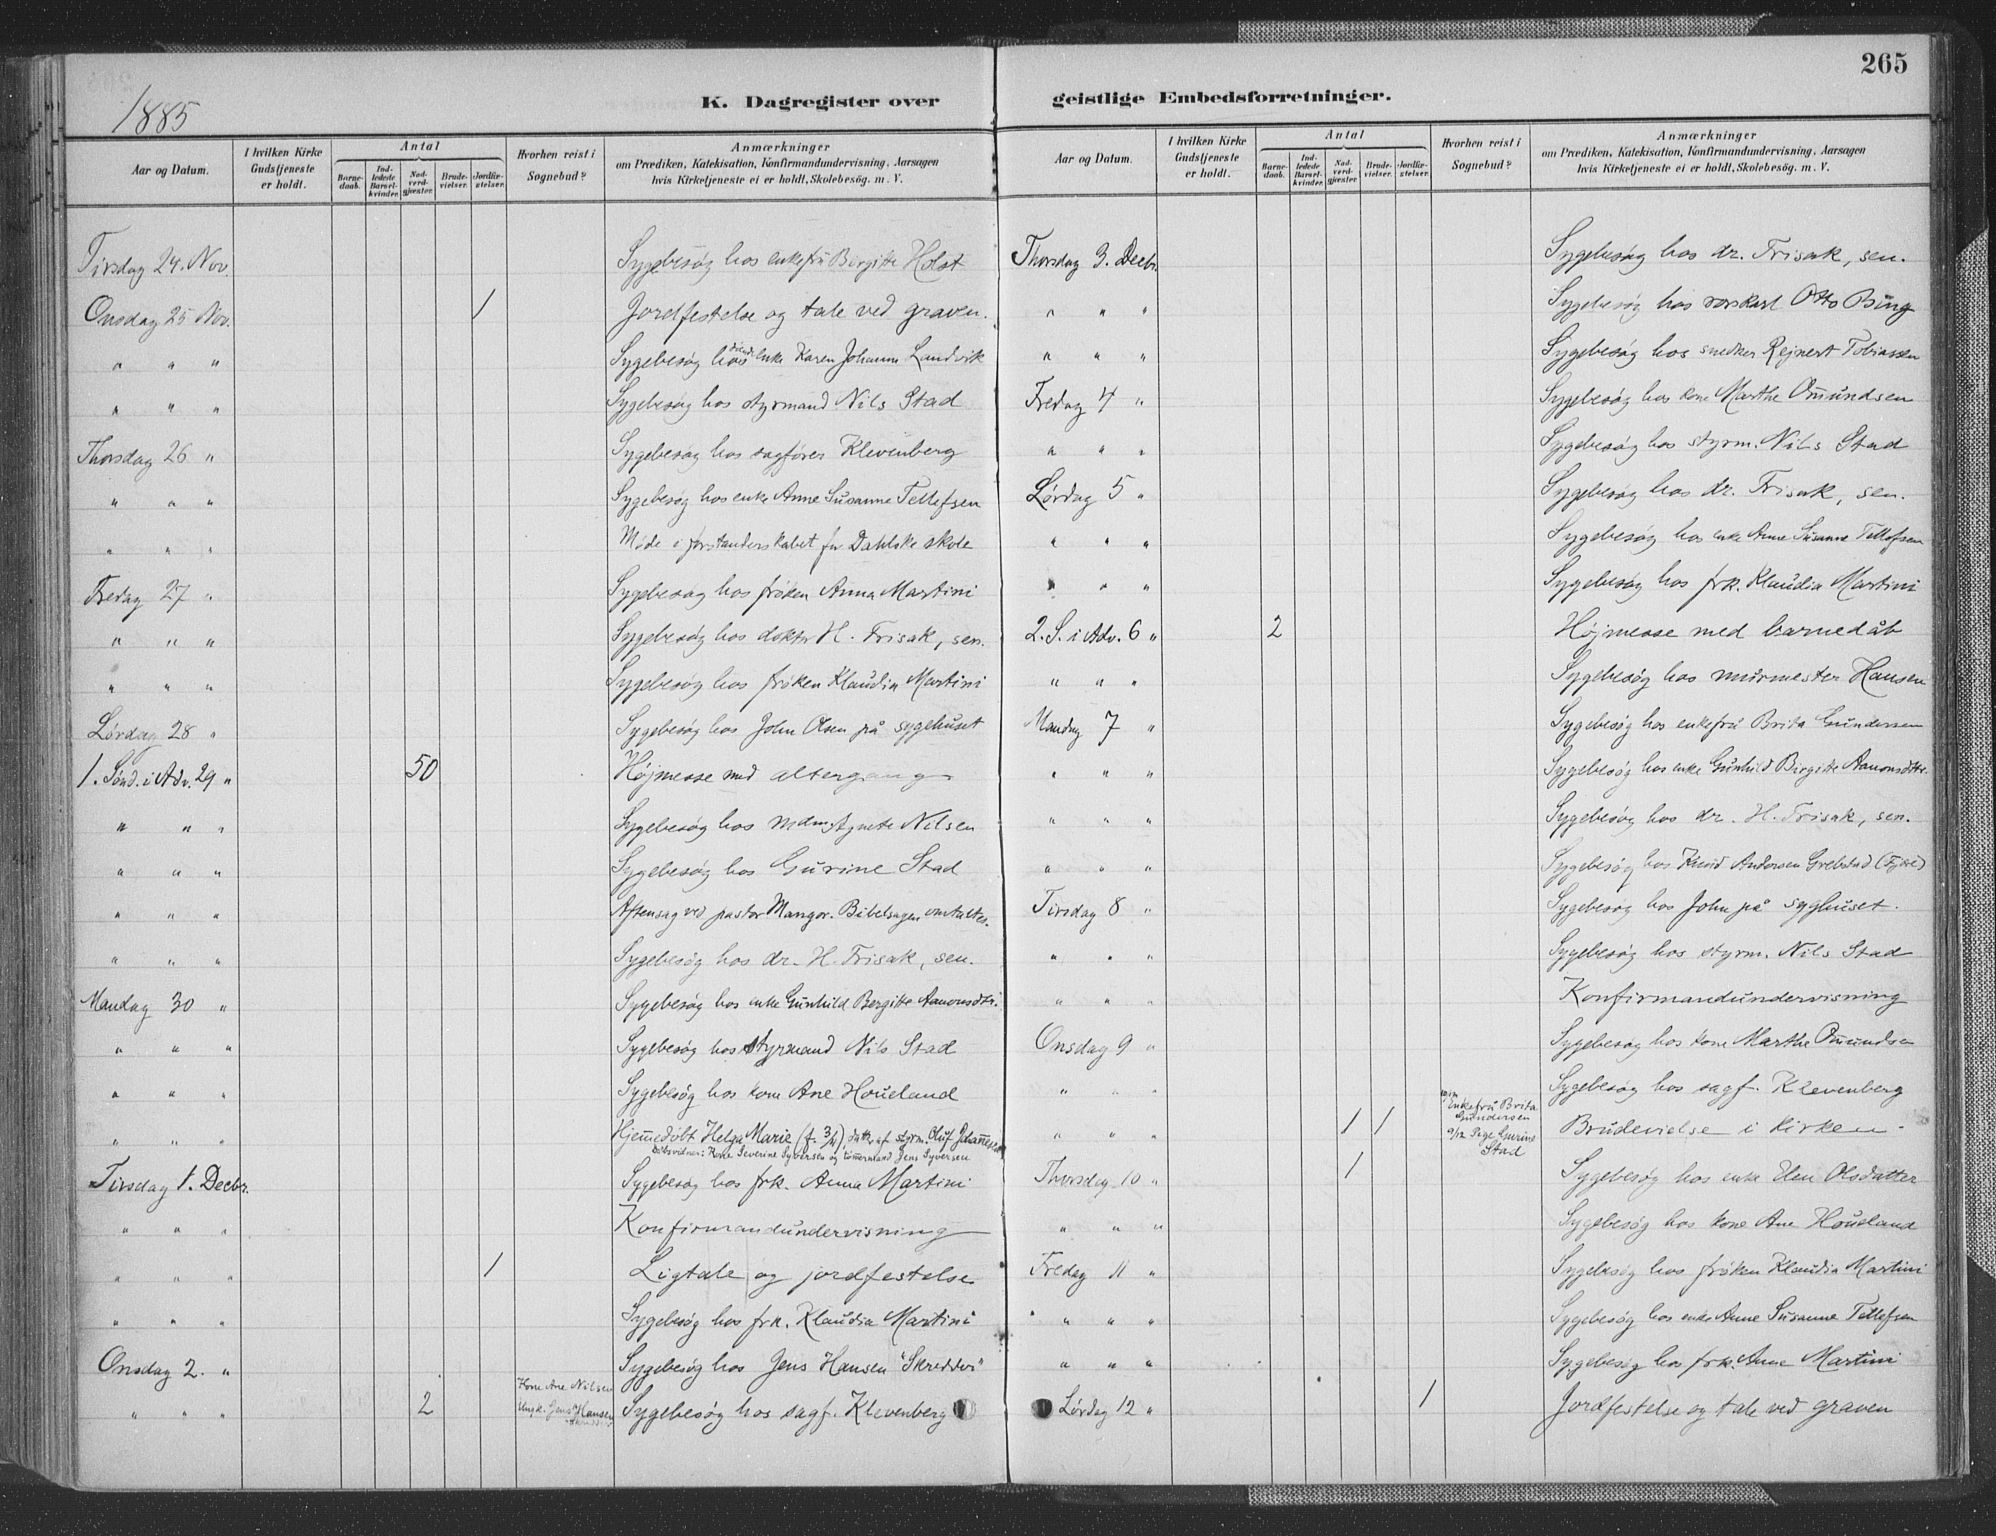 265
1885
K. Dagregister over geistlige Embedsforretninger.
Aar og Datum.
I hvilken Kirke Gudstjeneste er holdt.
Antal
Barne-daab.
Ind-ledede Barsel-kvinder.
Nad-verd-gjæster.
Brude-vielser.
Jordfæ-stelser.
Hvorhen reist i Sognebud?
Anmærkninger
om Prædiken, Katekisation, Konfirmandundervisning, Aarsagen
hvis Kirketjeneste ei er holdt, Skolebesøg. m. V.
Tirsdag 24. Nov. Sygebesøg hos enkefru Birgitte Holst
Onsdag 25 Nov. 1 Jordfestelse og tale ved graven.
" " " Sygebesøg hos enke Karen Johanne Landvik
" " " Sygebesøg hos styrmand Nils Stad
Thorsdag 26 " Sygebesøg hos sagfører Klevenberg
" " " Sygebesøg hos enke Anne Susanne Tellefsen
" " " Møde i forstanderskabet for Dahlske skole
Fredag 27 " Sygebesøg hos frøken Anna Martini
" " " Sygebesøg hos doktor H. Frisak, sen.
" " " Sygebesøg hos frøken Klaudia Martini
Lørdag 28 " Sygebesøg hos John Olsen på sygehuset
1. Sønd. i Adv. 29 " 50 Højmesse med altergang
" " " Sygebesøg hos mdm Agnete Nilsen
" " " Sygebesøg hos Gurine Stad
" " " Aftensag ved pastor Mangor. Bibelsagen omtaltes.
" " " Sygebesøg hos dr. H. Frisak, sen.
Mandag 30 " Sygebesøg hos enke Gunhild Bergitte Aanonsdtr.
" " " Sygebesøg hos styrmand Nils Stad
" " " Sygebesøg hos kone Ane Houeland
" " " Hjemmedøbt Helga Marie (f. 3/4), datter af styrm. Oluf Johannesen
Dåbsvidner: Kone Severine Syversen og tømmermand Jens Syversen
Tirsdag 1. Decbr. Sygebesøg hos frk. Anna Martini
" " " Konfirmandundervisning
" " " 1 Ligtale og jordfestelse
" " " Sygebesøg hos frk. Klaudia Martini
Onsdag 2. " Sygebesøg hos Jens Hansen "Skredder"
" " " 2 Kone Ane Nilsen Ungk. Jens Hansen Sygebesøg hos sagf. Klevenberg
Aar og Datum.
I hvilken Kirke Gudstjeneste er holdt.
Antal
Barne-daab.
Ind-ledede Barsel-kvinder.
Nad-verd-gjæster.
Brude-vielser.
Jordfæ-stelser.
Hvorhen reist i Sognebud?
Anmærkninger
om Prædiken, Katekisation, Konfirmandundervisning, Aarsagen
hvis Kirketjeneste ei er holdt, Skolebesøg. m. V.
Thorsdag 3. Decbr. Sygebesøg hos dr. Frisak, sen.
" " " Sygebesøg hos Otto Bing
" " " Sygebesøg hos snedker Rejnert Tobiassen
Fredag 4 " Sygebesøg hos kone Marthe Omundsen
" " " Sygebesøg hos styrm. Nils Stad
Lørdag 5 " Sygebesøg hos dr. Frisak, sen.
" " " Sygebesøg hos enke Anne Susanne Tellefsen
" " " Sygebesøg hos frk. Klaudia Martini
2. S. i Adv. 6 " 2 Højmesse med barnedåb
" " " Sygebesøg hos murmester Hansen
Mandag 7 " Sygebesøg hos enkefru Brita Gundersen
" " " Sygebesøg hos enke Gunhild Birgitte Aanonsdtr.
" " " Sygebesøg hos dr. H. Frisak, sen.
" " " Sygebesøg hos Knud Andersen Grebstad (Fjære)
Tirsdag 8 " Sygebesøg hos John på syghuset.
" " " Sygebesøg hos styrm. Nils Stad
" " " Konfirmandundervisning
Onsdag 9 " Sygebesøg hos kone Marthe Omundsen
" " " Sygebesøg hos sagf. Klevenberg
" " " 1 1 Enkefru Brita Gundersen Brudevielse i kirken
Thorsdag 10 " 1 9/12 Pige Gurine Stad Sygebesøg hos enke Elen Olsdatter
" " " Sygebesøg hos kone Ane Houeland
Fredag 11 " Sygebesøg hos frøken Klaudia Martini
" " " Sygebesøg hos enke Anne Susanne Tellefsen
" " " Sygebesøg hos frk. Anna Martini
Lørdag 12 " 1 Jordfestelse og tale ved graven